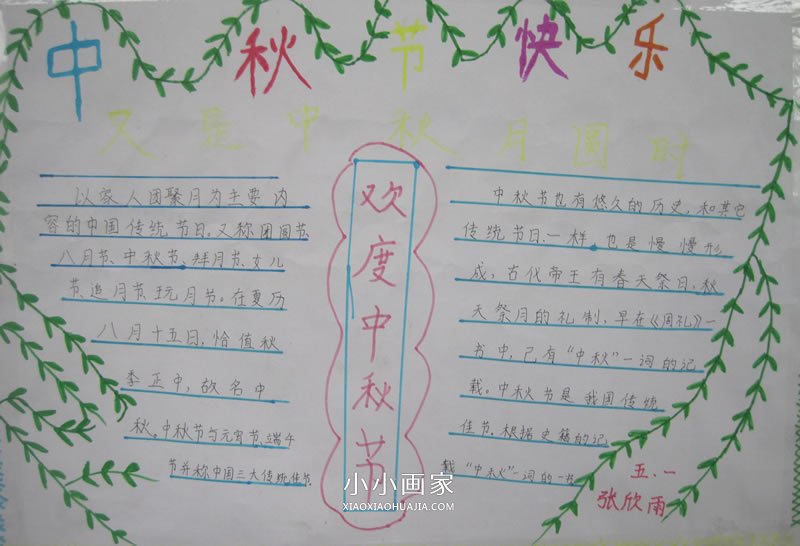 中秋节快乐
又是中秋月圆时
以家人团聚月为主要内
容的中国传统节日,又称团圆节
八月节、中秋节、拜月节、女儿
节、追月节、玩月节。在夏历
八月十五日,恰值秋
季正中,故名中
秋。中秋节与元宵节、端午
节并称中国三大传统佳节
欢度中秋节
中秋节也有悠久的历史,和其它
传统节日一样,也是慢慢形
成,古代帝王有春天祭日,秋
天祭月的礼制,早在《周礼》一
书中,已有“中秋”一词的记
载。中秋节是我国传统
佳节,根据史籍的记
载“中秋”一词的一
五.一
张欣雨
小小画家
XIAOXIAOHUAJIA.COM